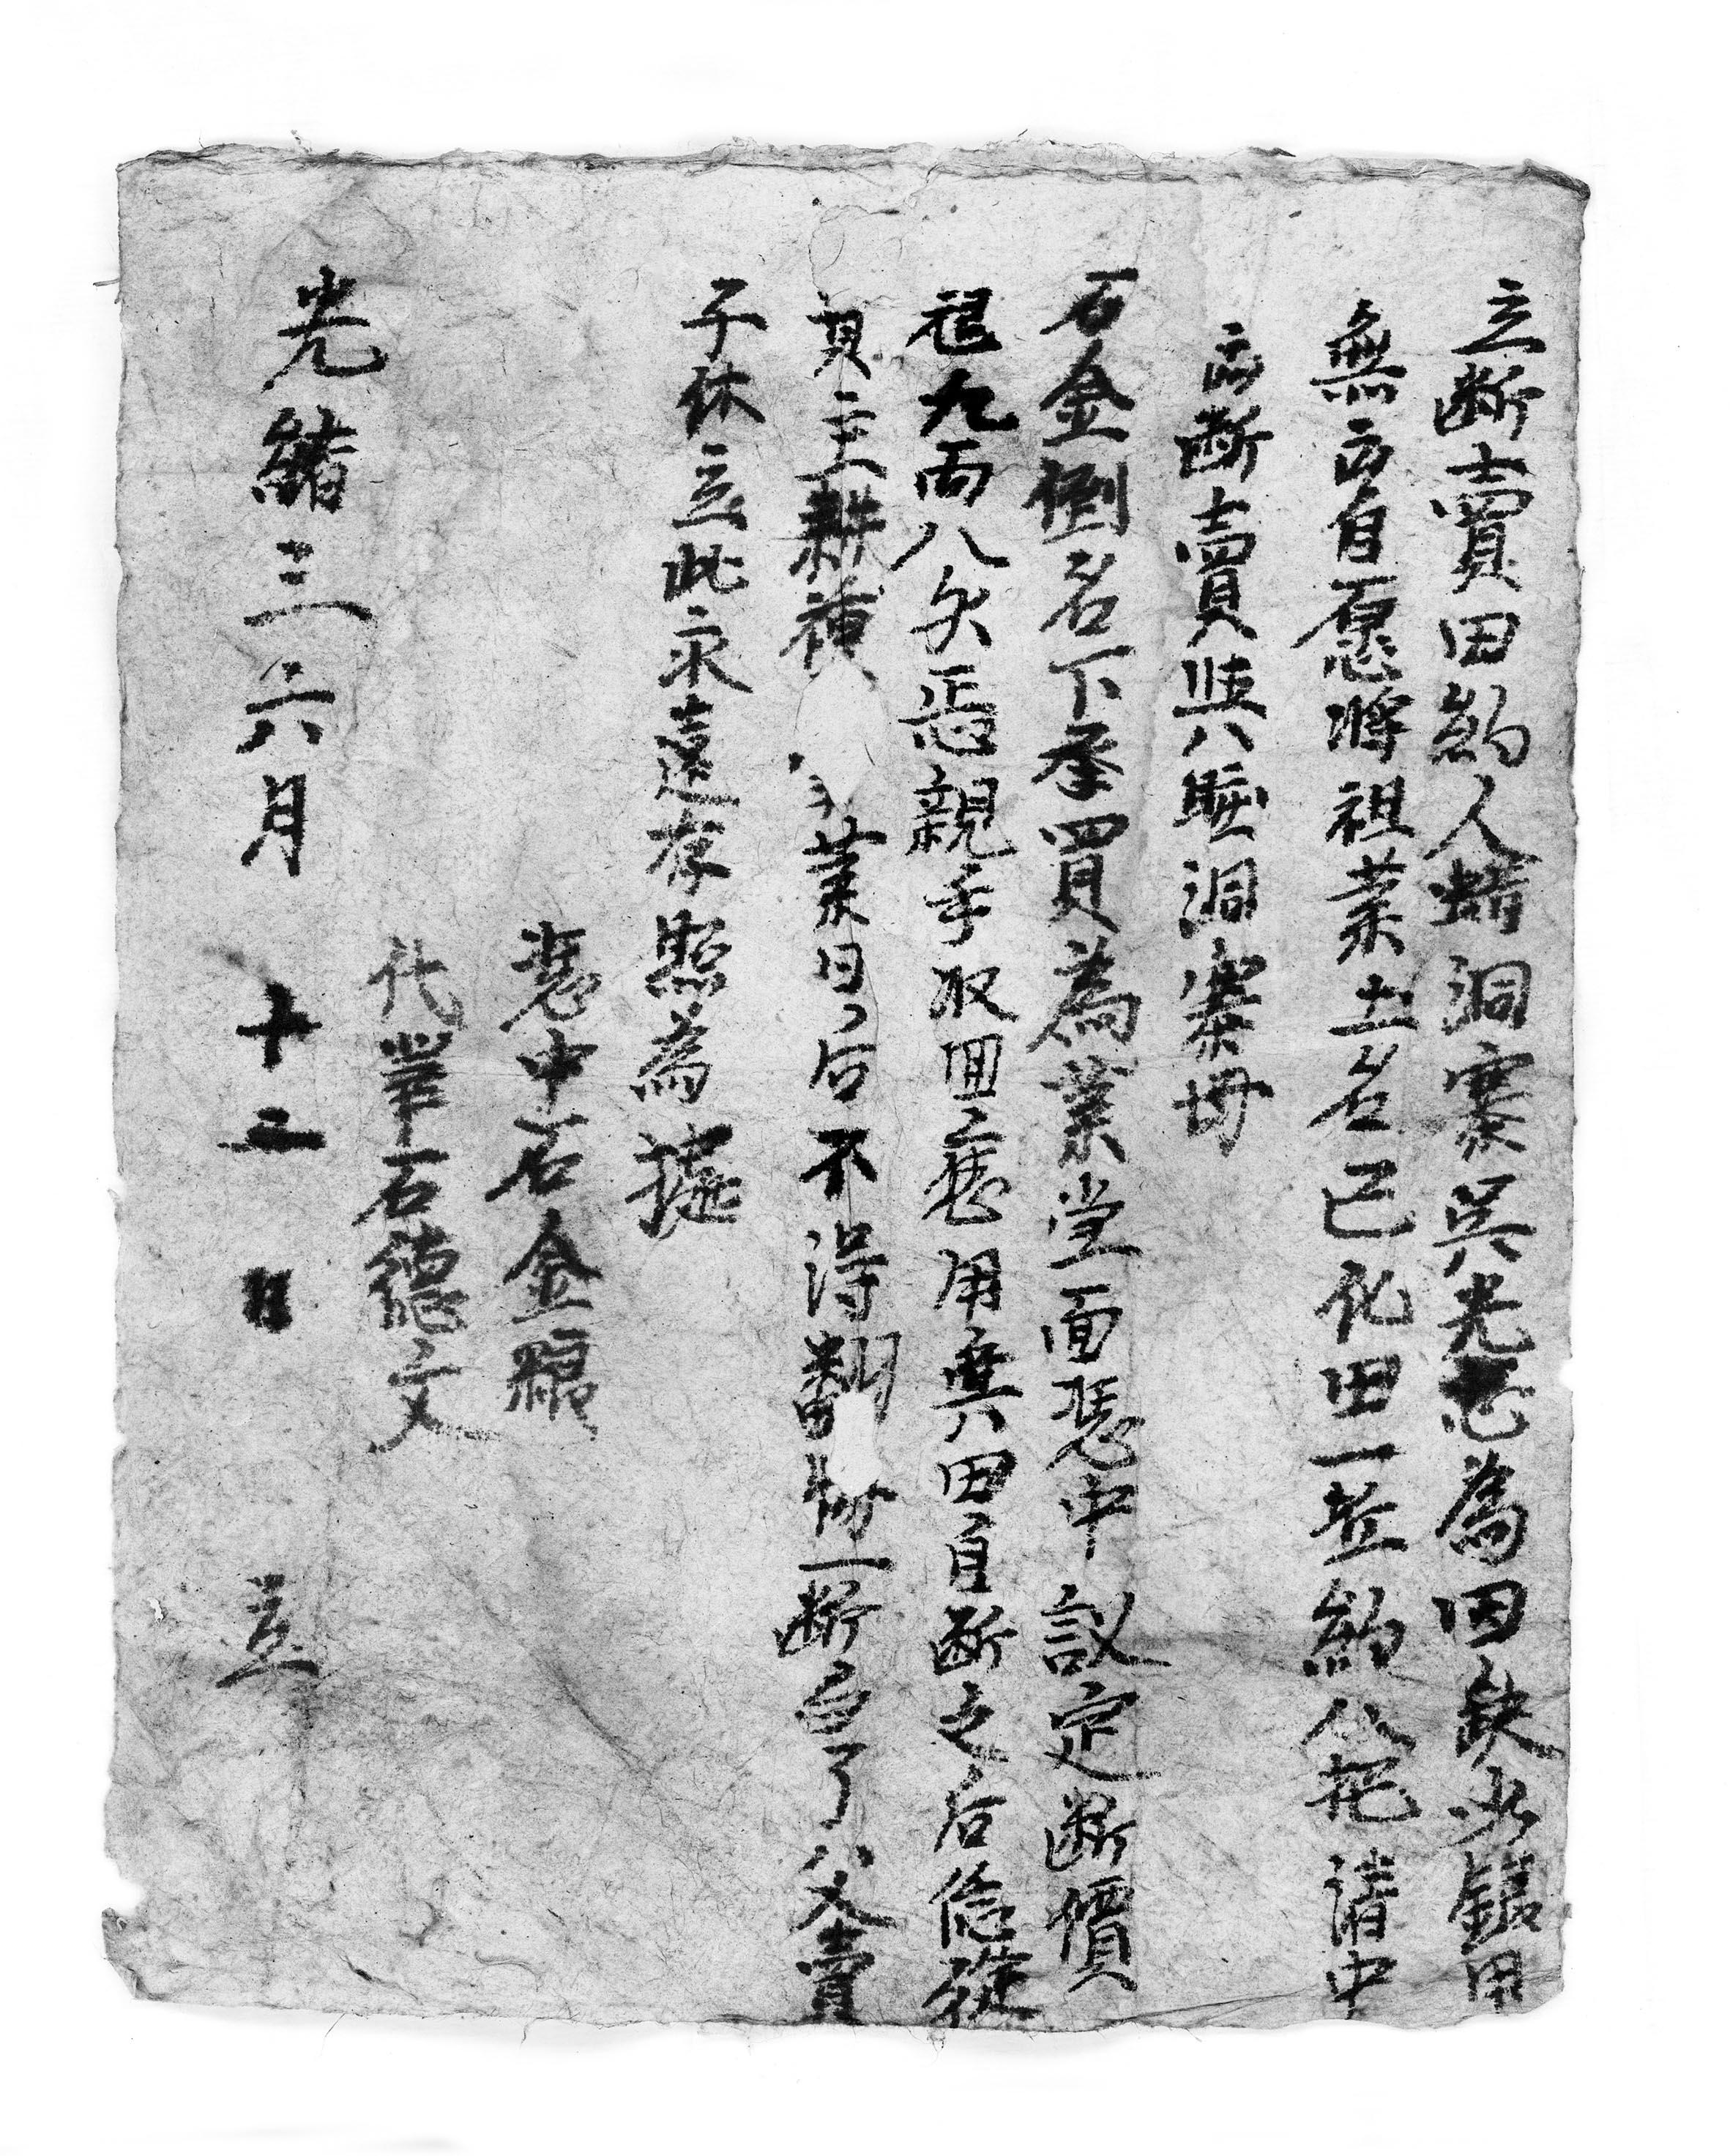 立断賣田約人蜡洞寨吳光志為因缺少銀用
無出自愿將祖業土名己化田一坵約八把請中
出断賣與八𥆧洞寨
石金倒名下承買為業當面憑中议定断價
九両八欠焉親手収回應用其田自断之后任從
買主耕種 業日後后不得翻 一断百了父賣
子休立此永遠存照為據
憑中石金
代筆石德文
光緒三六月十二日立